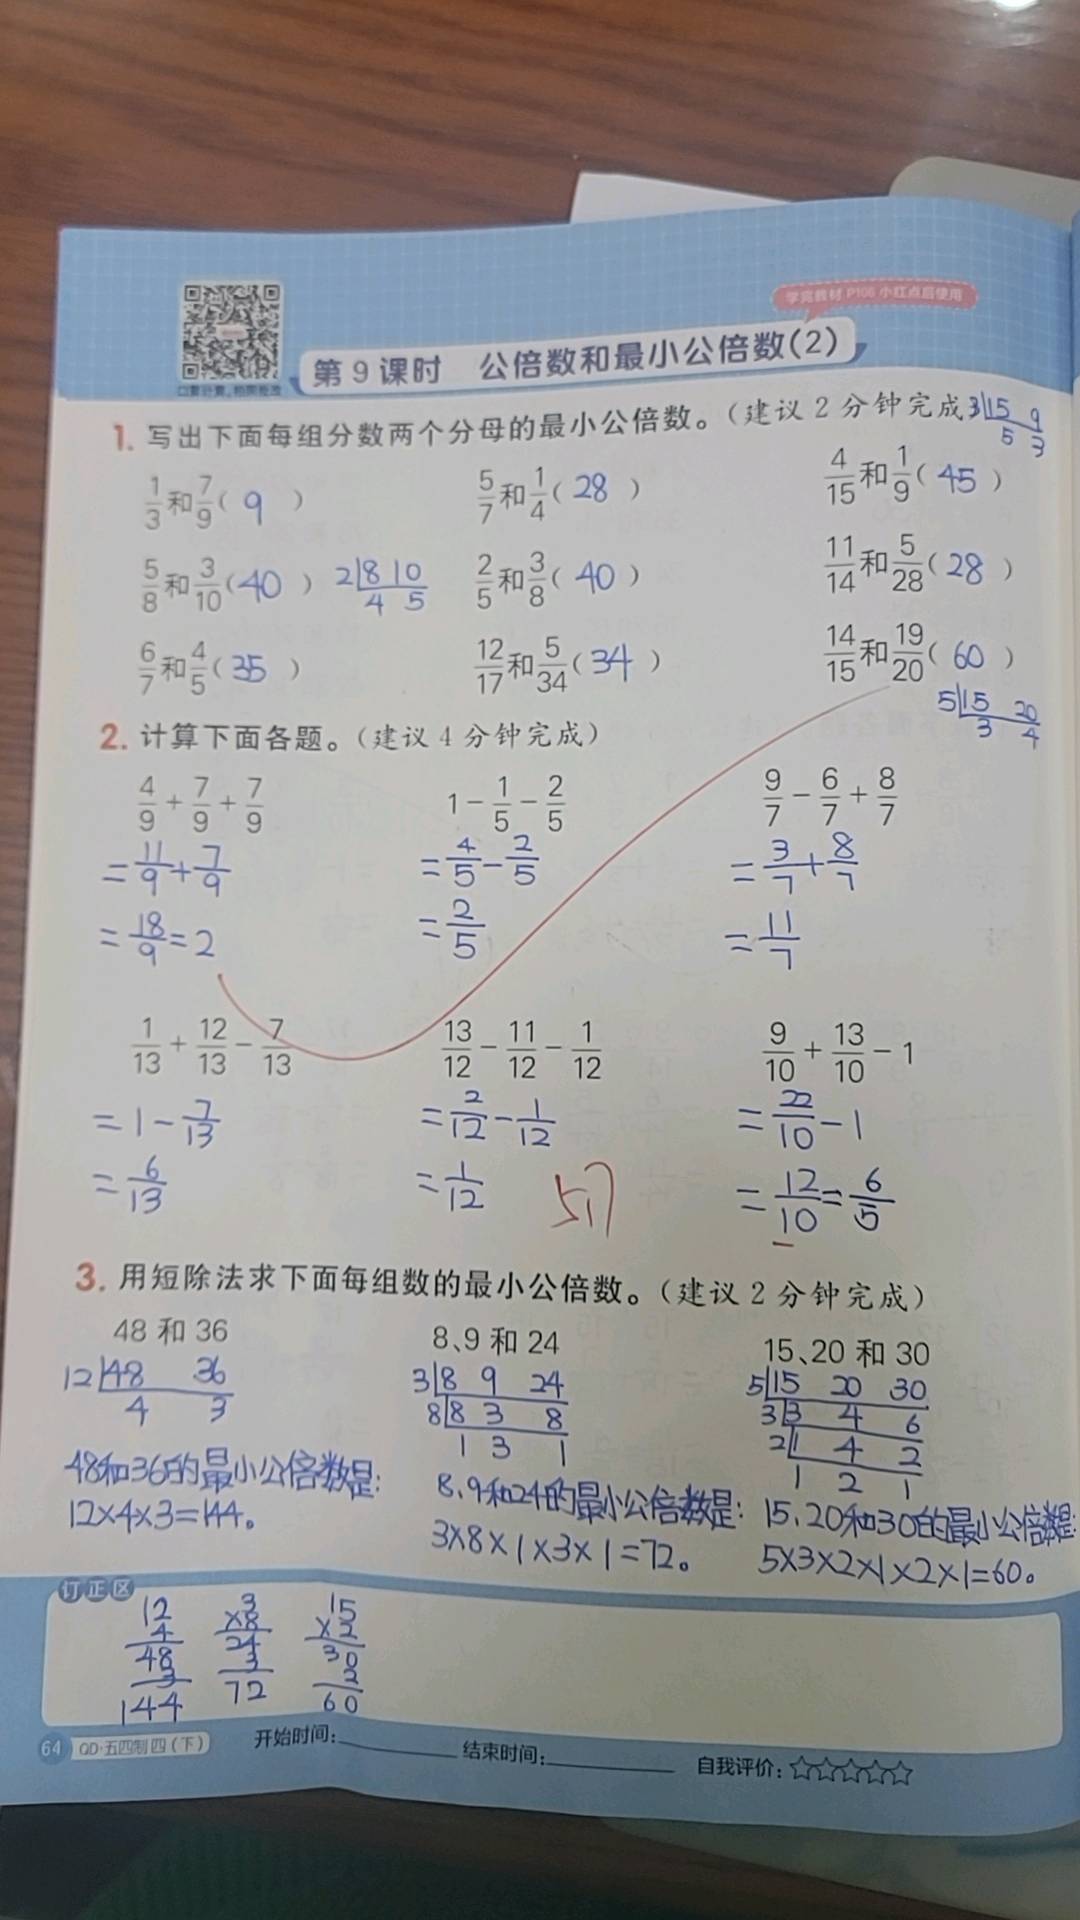 学完教材 P106 小红点后使用
口算计算,拍照批改
第 9 课时 公倍数和最小公倍数(2)
1. 写出下面每组分数两个分母的最小公倍数。(建议 2 分钟完成
3 15 9
5 3
1/3和7/9( 9 ) 5/7和1/4( 28 ) 4/15和1/9( 45 )
5/8和3/10( 40 ) 2 8 10 2/5和3/8( 40 ) 11/14和5/28( 28 )
4 5
6/7和4/5( 35 ) 12/17和5/34( 34 ) 14/15和19/20( 60 )
5 15 20
3 4
2. 计算下面各题。(建议 4 分钟完成)
4/9 + 7/9 + 7/9 1 - 1/5 - 2/5 9/7 - 6/7 + 8/7
= 11/9 + 7/9 = 4/5 - 2/5 = 3/7 + 8/7
= 18/9 = 2 = 2/5 = 11/7
1/13 + 12/13 - 7/13 13/12 - 11/12 - 1/12 9/10 + 13/10 - 1
= 1 - 7/13 = 2/12 - 1/12 = 22/10 - 1
= 6/13 = 1/12 = 12/10 = 6/5
3. 用短除法求下面每组数的最小公倍数。(建议 2 分钟完成)
48 和 36 8、9 和 24 15、20 和 30
12 48 36 3 8 9 24 5 15 20 30
4 3 8 8 3 8 3 3 4 6
1 3 1 2 1 4 2
1 2 1
48和36的最小公倍数是: 8、9和24的最小公倍数是: 15、20和30的最小公倍数是:
12×4×3=144。 3×8×1×3×1=72。 5×3×2×1×2×1=60。
订正区
12 3 15
4 ×8 ×2
48 24 30
3 3 2
144 72 60
64 QD·五四制 四(下) 开始时间: 结束时间: 自我评价:☆☆☆☆☆